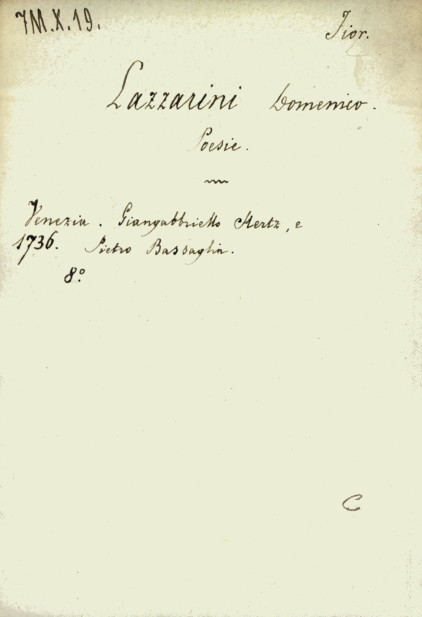 7M.X.19.
Fior.
Lazzarini Domenico.
Poesie.
Venezia. Giangabbriello Hertz, e
1736. Pietro Bassaglia.
8º
C